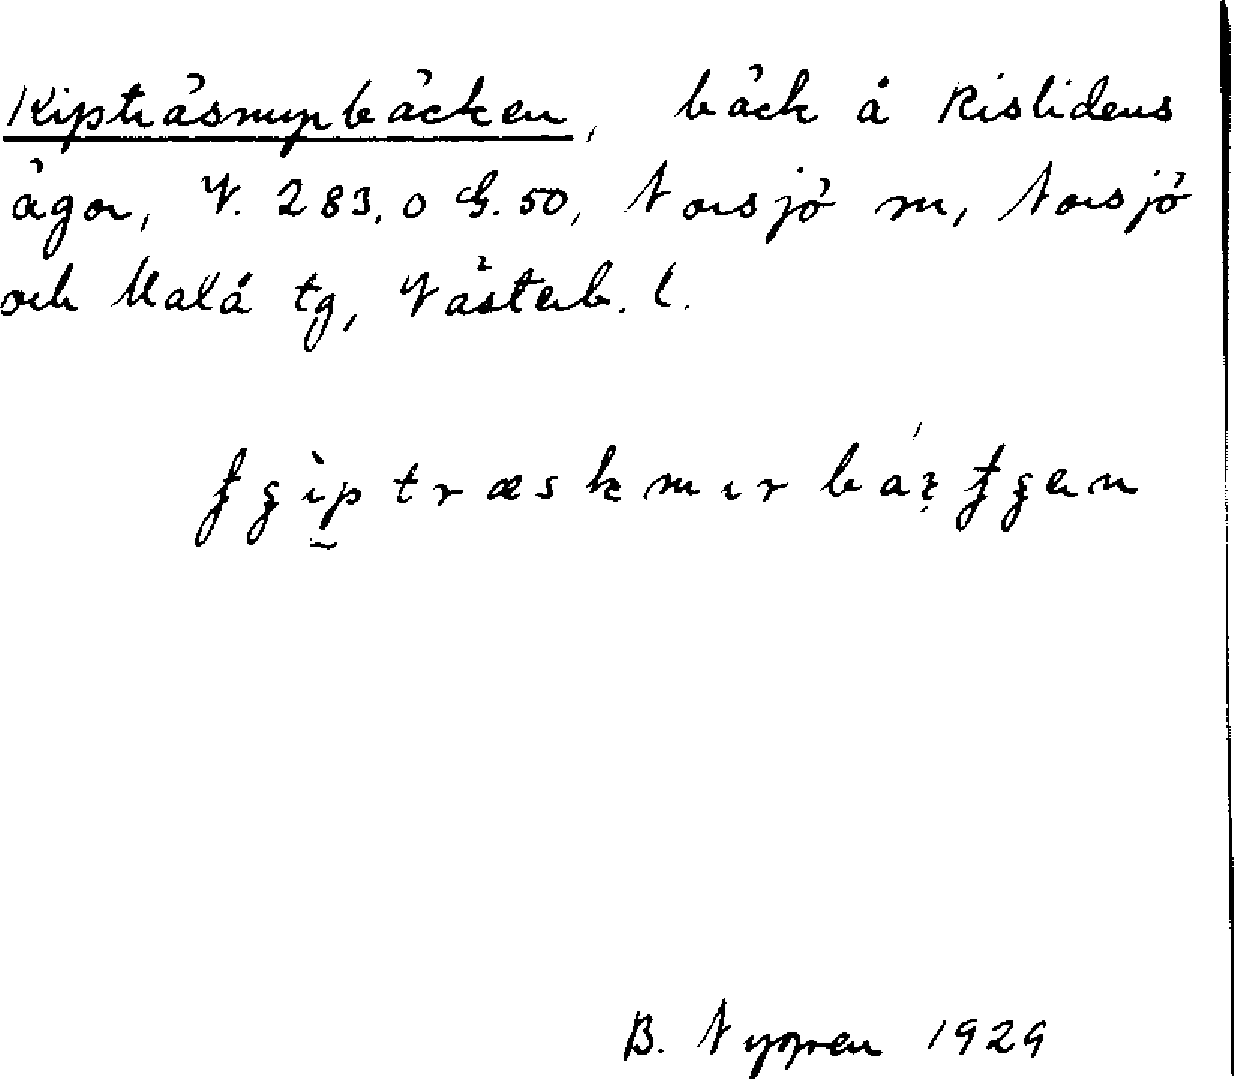 Kipträsmyrbäcken, bäck å Rislidens
ägor, V. 283, o G. 50, Norsjö m, Norsjö
och Malå tg, Västerb. l.
B. Nygren 1929